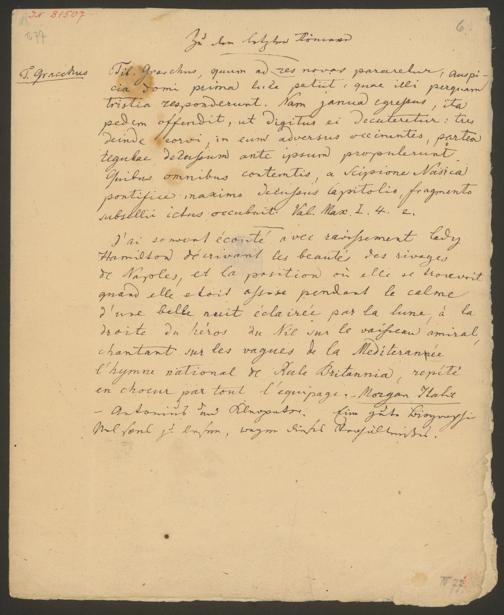 I.N. 81507
6.
Zu den letzten Römern
T. Gracchus
Tib. Gracchus, quum ad res novas pararetur, auspi-
cia domi prima luce petiit, quae illi perquam
tristia responderunt. Nam janua egressus, ita
pedem offendit, ut digitus ei decuteretur: tres
deinde corvi, in eum adversus occinentes, partem
tegulae decussam ante ipsum propulerunt.
Quibus omnibus contemtis, a Scipione Nasica
pontifice maximo decussus Capitolio, fragmento
subsellii ictus occubuit. Val. Max. I. 4. 2.
J'ai souvent écouté avec ravissement Lady
Hamilton décrivant les beautés des rivages
de Naples, et la position où elle se trouvoit
quand elle etoit assise pendant le calme
d'une belle nuit éclairée par la lune, à la
droite du héros du Nil sur le vaisseau amiral,
chantant sur les vagues de la Mediterannée
l'hymne national de Rule Britannia, repété
en choeur par tout l'equipage. Morgan Italie
– Antonius und Kleopatra. Eine gute Biographie
Nelsons zu lesen, wegen dieses Verhältnisses.